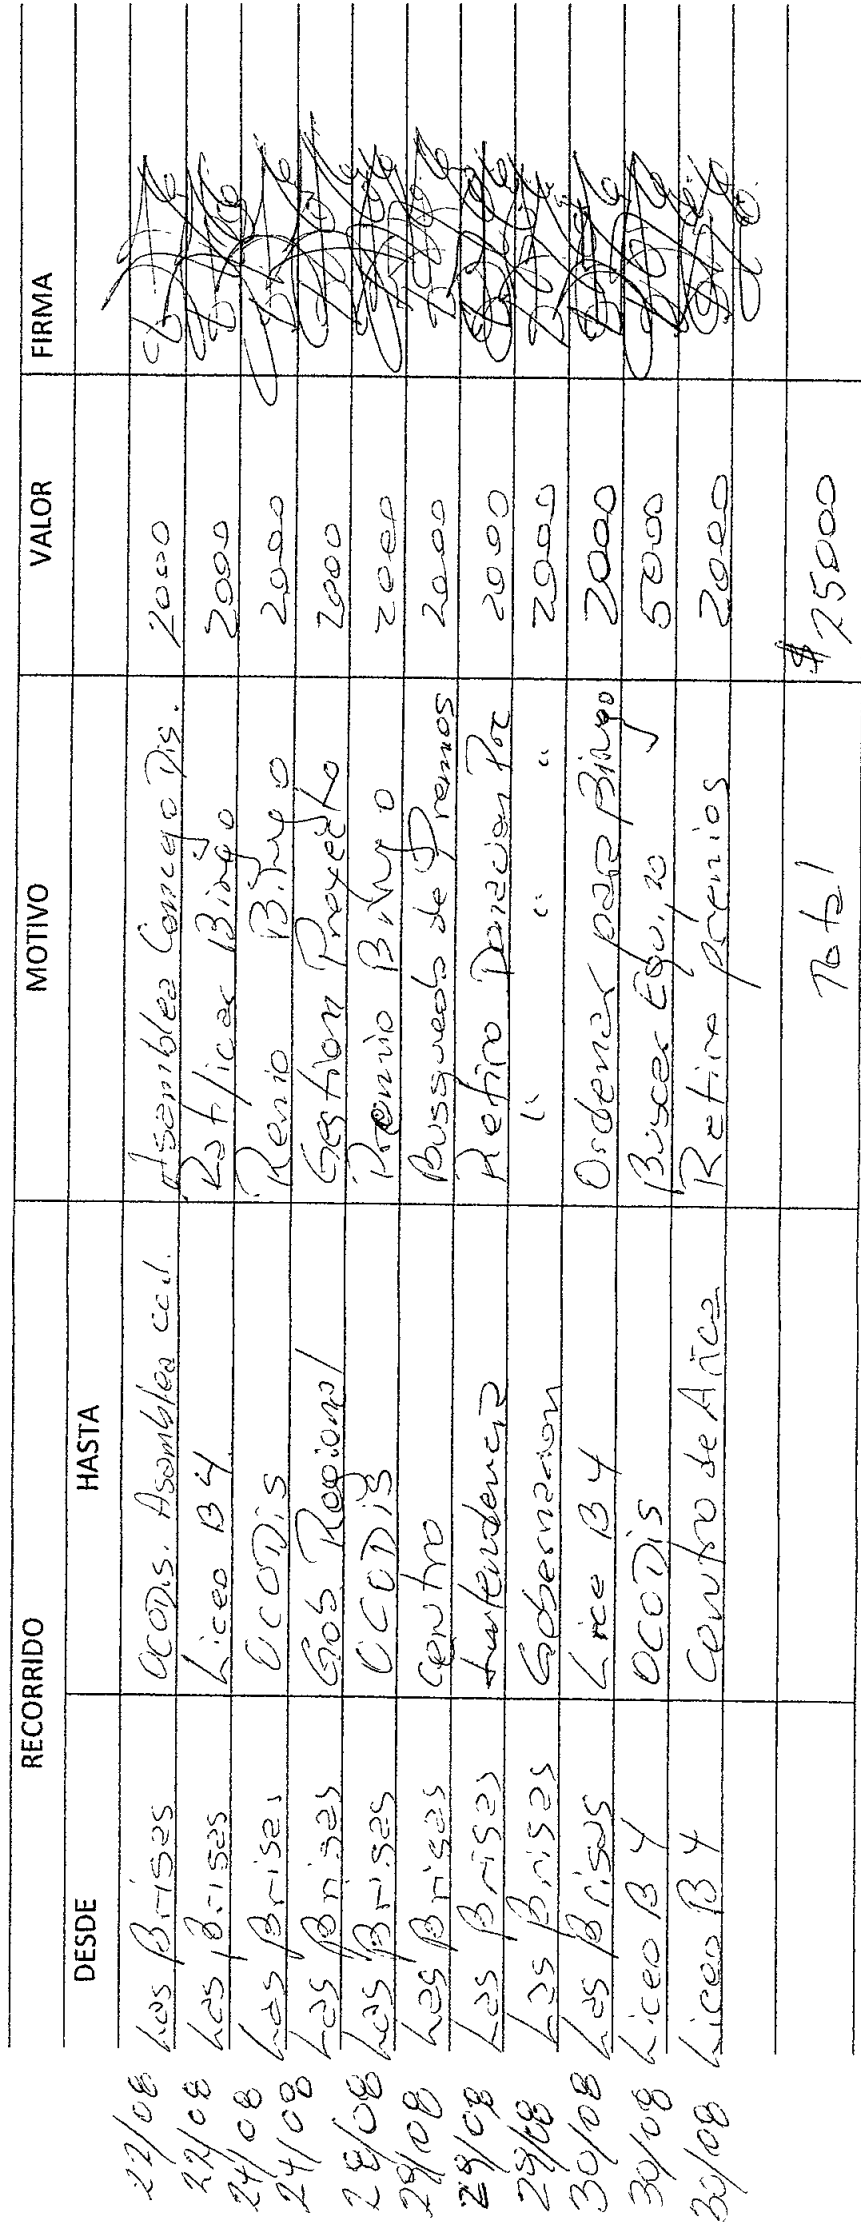 RECORRIDO MOTIVO VALOR FIRMA
DESDE HASTA
22/08 Las Brisas OCODis. Asamblea Asamblea Consejo Dis. 2000
22/08 Las Brisas Liceo B4 Ratificar Bingo 2000
24/08 Las Brisas OCODis Renio Bingo 2000
24/08 Las Brisas Gob Regional Gestion Proyecto 2000
28/08 Las Brisas OCODis Premio Bingo 2000
29/08 Las Brisas Centro Busqueda de Premios 2000
29/08 Las Brisas Intendencia Retiro Donacion 2000
29/08 Las Brisas Gobernacion " " " 2000
30/08 Las Brisas Lice B4 Ordenar para Bingo 2000
30/08 Liceo B4 OCODis Buscar Equipo 5000
30/08 Liceo B4 Centro de Arica Retiro premios 2000
Total $ 25000